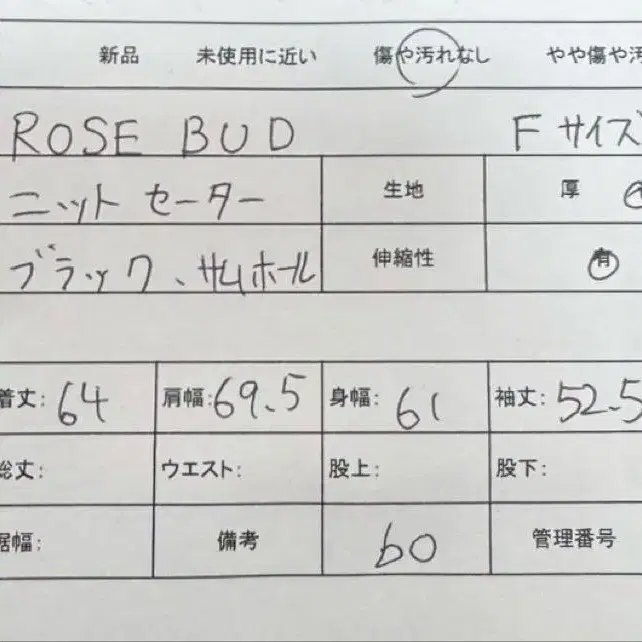 新品 未使用に近い 傷や汚れなし やや傷や汚
ROSE BUD Fサイズ
ニット セーター 生地 厚
ブラック、サムホール 伸縮性 有
着丈: 64 肩幅: 69.5 身幅: 61 袖丈: 52.5
総丈: ウエスト: 股上: 股下:
裾幅: 備考 60 管理番号